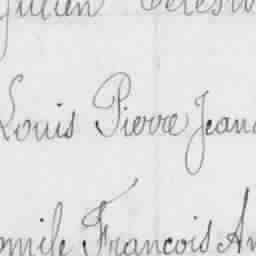 Julien Celes
Louis Pierre Jean
Emile François An